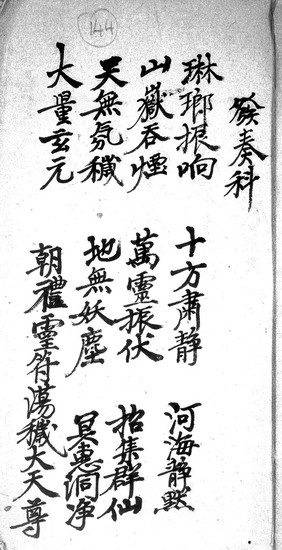 144
發奏科
琳瑯振响 十方肅静 河海静默
山嶽吞煙 萬靈振伏 招集群仙
天無氛穢 地無妖塵 冥惠洞净
大量玄元 朝禮靈符蕩穢大天尊